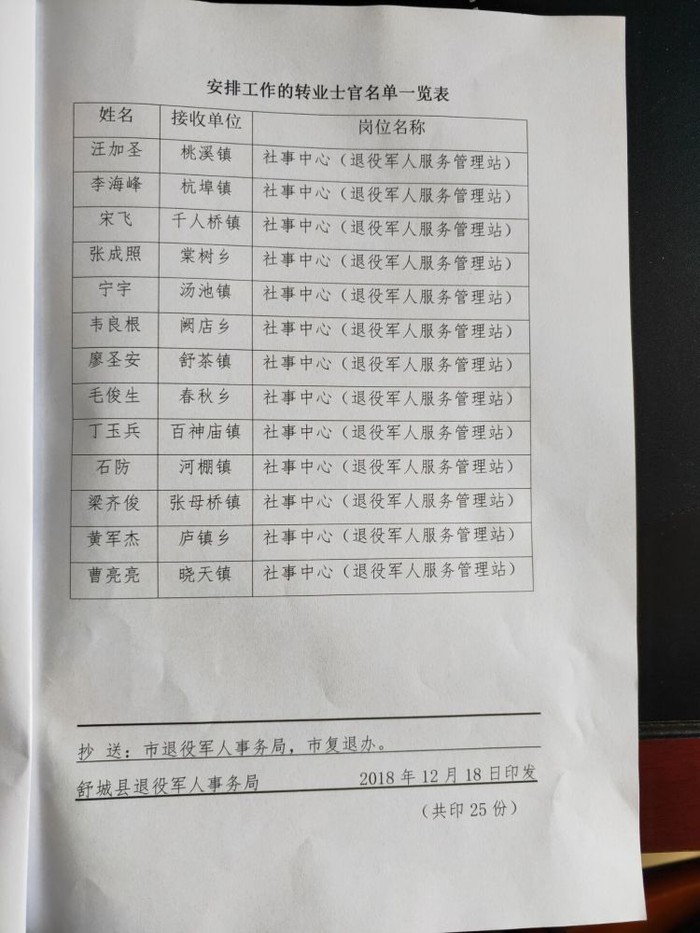 安排工作的转业士官名单一览表
姓名 接收单位 岗位名称
汪加圣 桃溪镇 社事中心（退役军人服务管理站）
李海峰 杭埠镇 社事中心（退役军人服务管理站）
宋飞 千人桥镇 社事中心（退役军人服务管理站）
张成照 棠树乡 社事中心（退役军人服务管理站）
宁宇 汤池镇 社事中心（退役军人服务管理站）
韦良根 阙店乡 社事中心（退役军人服务管理站）
廖圣安 舒茶镇 社事中心（退役军人服务管理站）
毛俊生 春秋乡 社事中心（退役军人服务管理站）
丁玉兵 百神庙镇 社事中心（退役军人服务管理站）
石防 河棚镇 社事中心（退役军人服务管理站）
梁齐俊 张母桥镇 社事中心（退役军人服务管理站）
黄军杰 庐镇乡 社事中心（退役军人服务管理站）
曹亮亮 晓天镇 社事中心（退役军人服务管理站）
抄 送：市退役军人事务局，市复退办。
舒城县退役军人事务局 2018年12月18日印发
（共印25份）